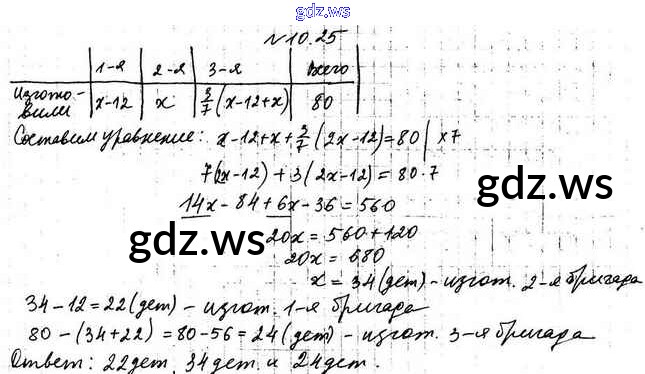 gdz.ws
№10.25
1-я 2-я 3-я Всего
Изгото-
вили x-12 x 3/7(x-12+x) 80
Составим уравнение: x-12+x+3/7(2x-12)=80 | x7
7(2x-12)+3(2x-12)=80·7
gdz.ws
14x-84+6x-36=560
gdz.ws
20x=560+120
20x=680
x=34(дет)-изгот. 2-я бригада
34-12=22(дет)-изгот. 1-я бригада
80-(34+22)=80-56=24(дет)-изгот. 3-я бригада
Ответ: 22дет, 34дет. и 24дет.